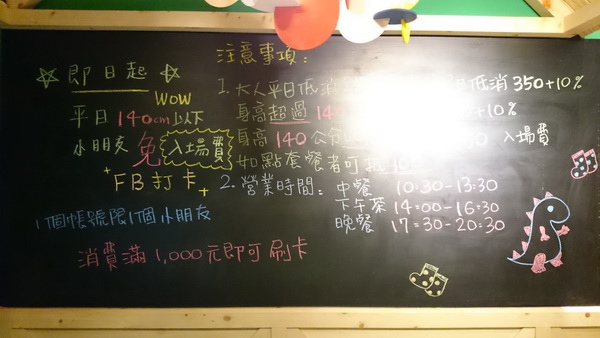 ☆即日起☆
WOW
平日140cm以下
小朋友免入場費
FB打卡
1個帳號限1個小朋友
消費滿1,000元即可刷卡
注意事項：
1. 大人平日低消 低消350+10%
身高超過14 +10%
身高140公分 入場費
如點套餐者可抵
2. 營業時間：中餐 10:30-13:30
下午茶 14:00-16:30
晚餐 17:30-20:30